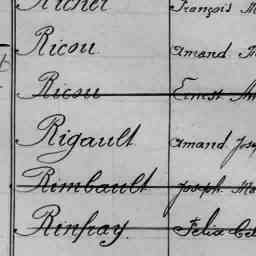 Richer François
Ricou Amand
Ricou Ernest
Rigault Amand
Rimbault Joseph
Rinfray Félix